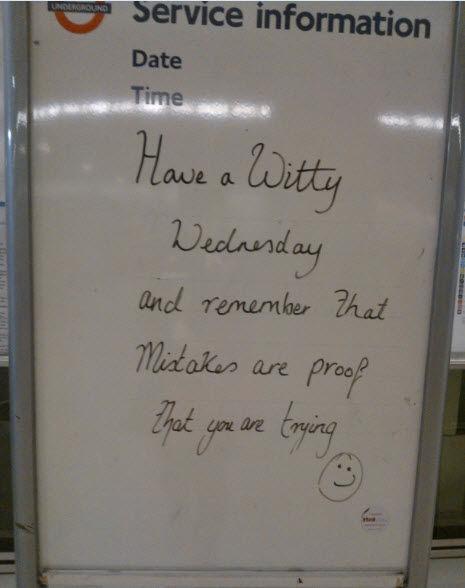 UNDERGROUND
Service information
Date
Time
Have a Witty
Wednesday
and remember that
Mistakes are proof
that you are trying